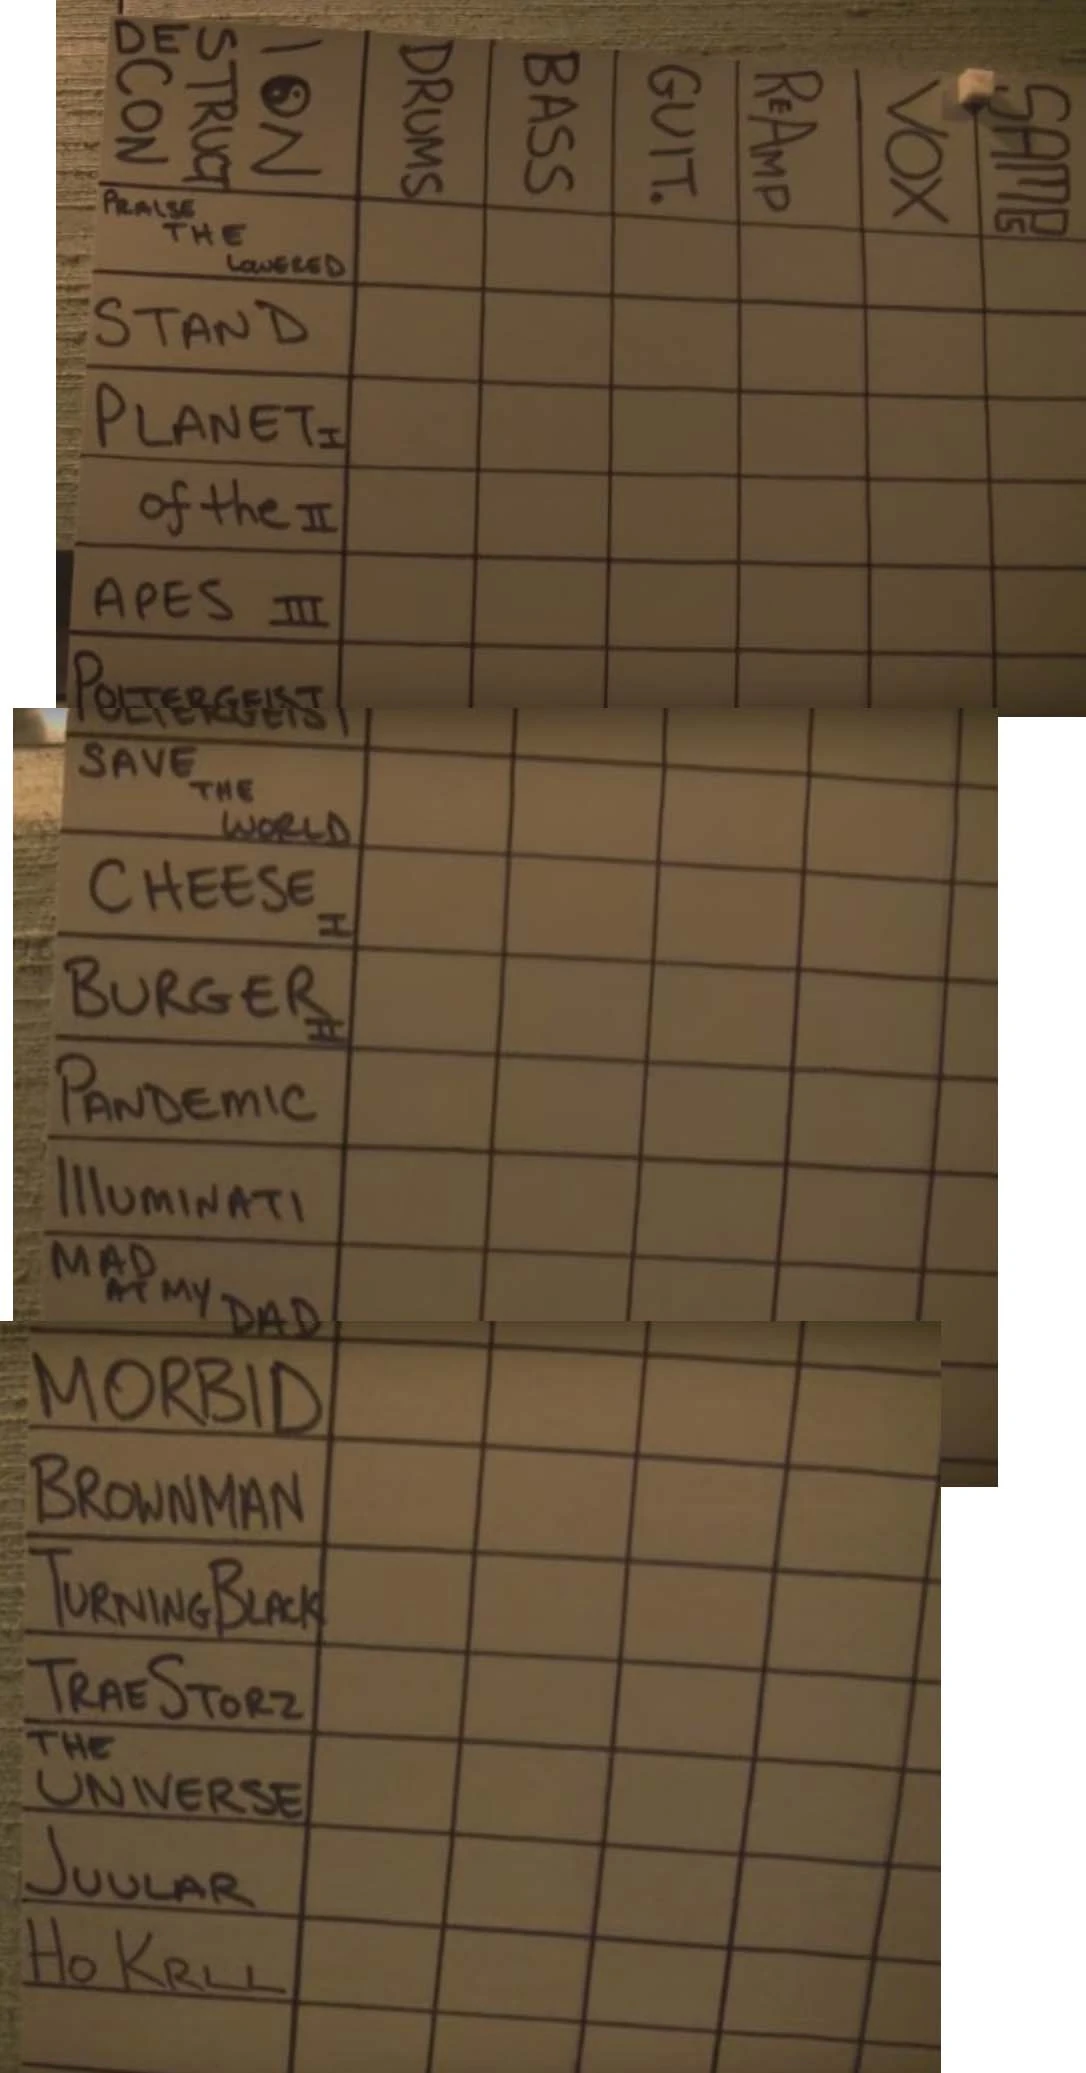 DE
CON
STRUCT
ION
DRUMS
BASS
GUIT.
REAMP
VOX
PRAISE
THE
LOWERED
STAND
PLANET I
of the II
APES III
POLTERGEIST
SAVE
THE
WORLD
CHEESE I
BURGER II
PANDEMIC
ILLUMINATI
MAD
AT MY
DAD
MORBID
BROWNMAN
TURNINGBLACK
TRAESTORZ
THE
UNIVERSE
JUULAR
HO KRLL